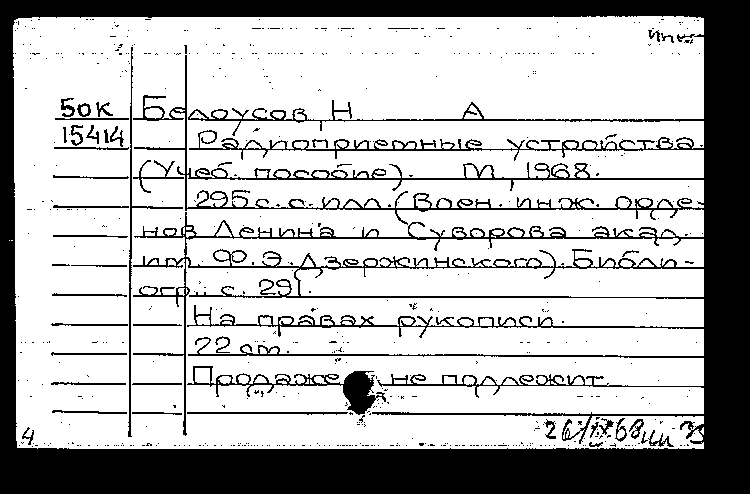 50К Белоусов, Н А
15414 Радиоприемные устройства.
(Учеб. пособие). М., 1968.
295 с. с илл. (Воен. инж. орде-
нов Ленина и Суворова акад.
им. Ф.Э.Дзержинского). Библи-
огр.: с. 291.
На правах рукописи.
22 см.
Продаже не подлежит
4